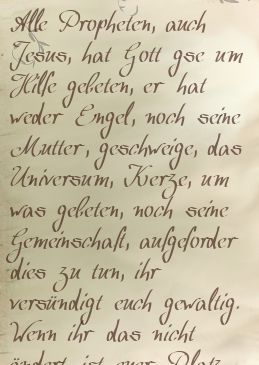 Alle Propheten, auch
Jesus, hat Gott gse um
Hilfe gebeten, er hat
weder Engel, noch seine
Mutter, geschweige, das
Universum, Kerze, um
was gebeten, noch seine
Gemeinschaft, aufgeforder
dies zu tun, ihr
versündigt euch gewaltig.
Wenn ihr das nicht
ändert ist euer Platz